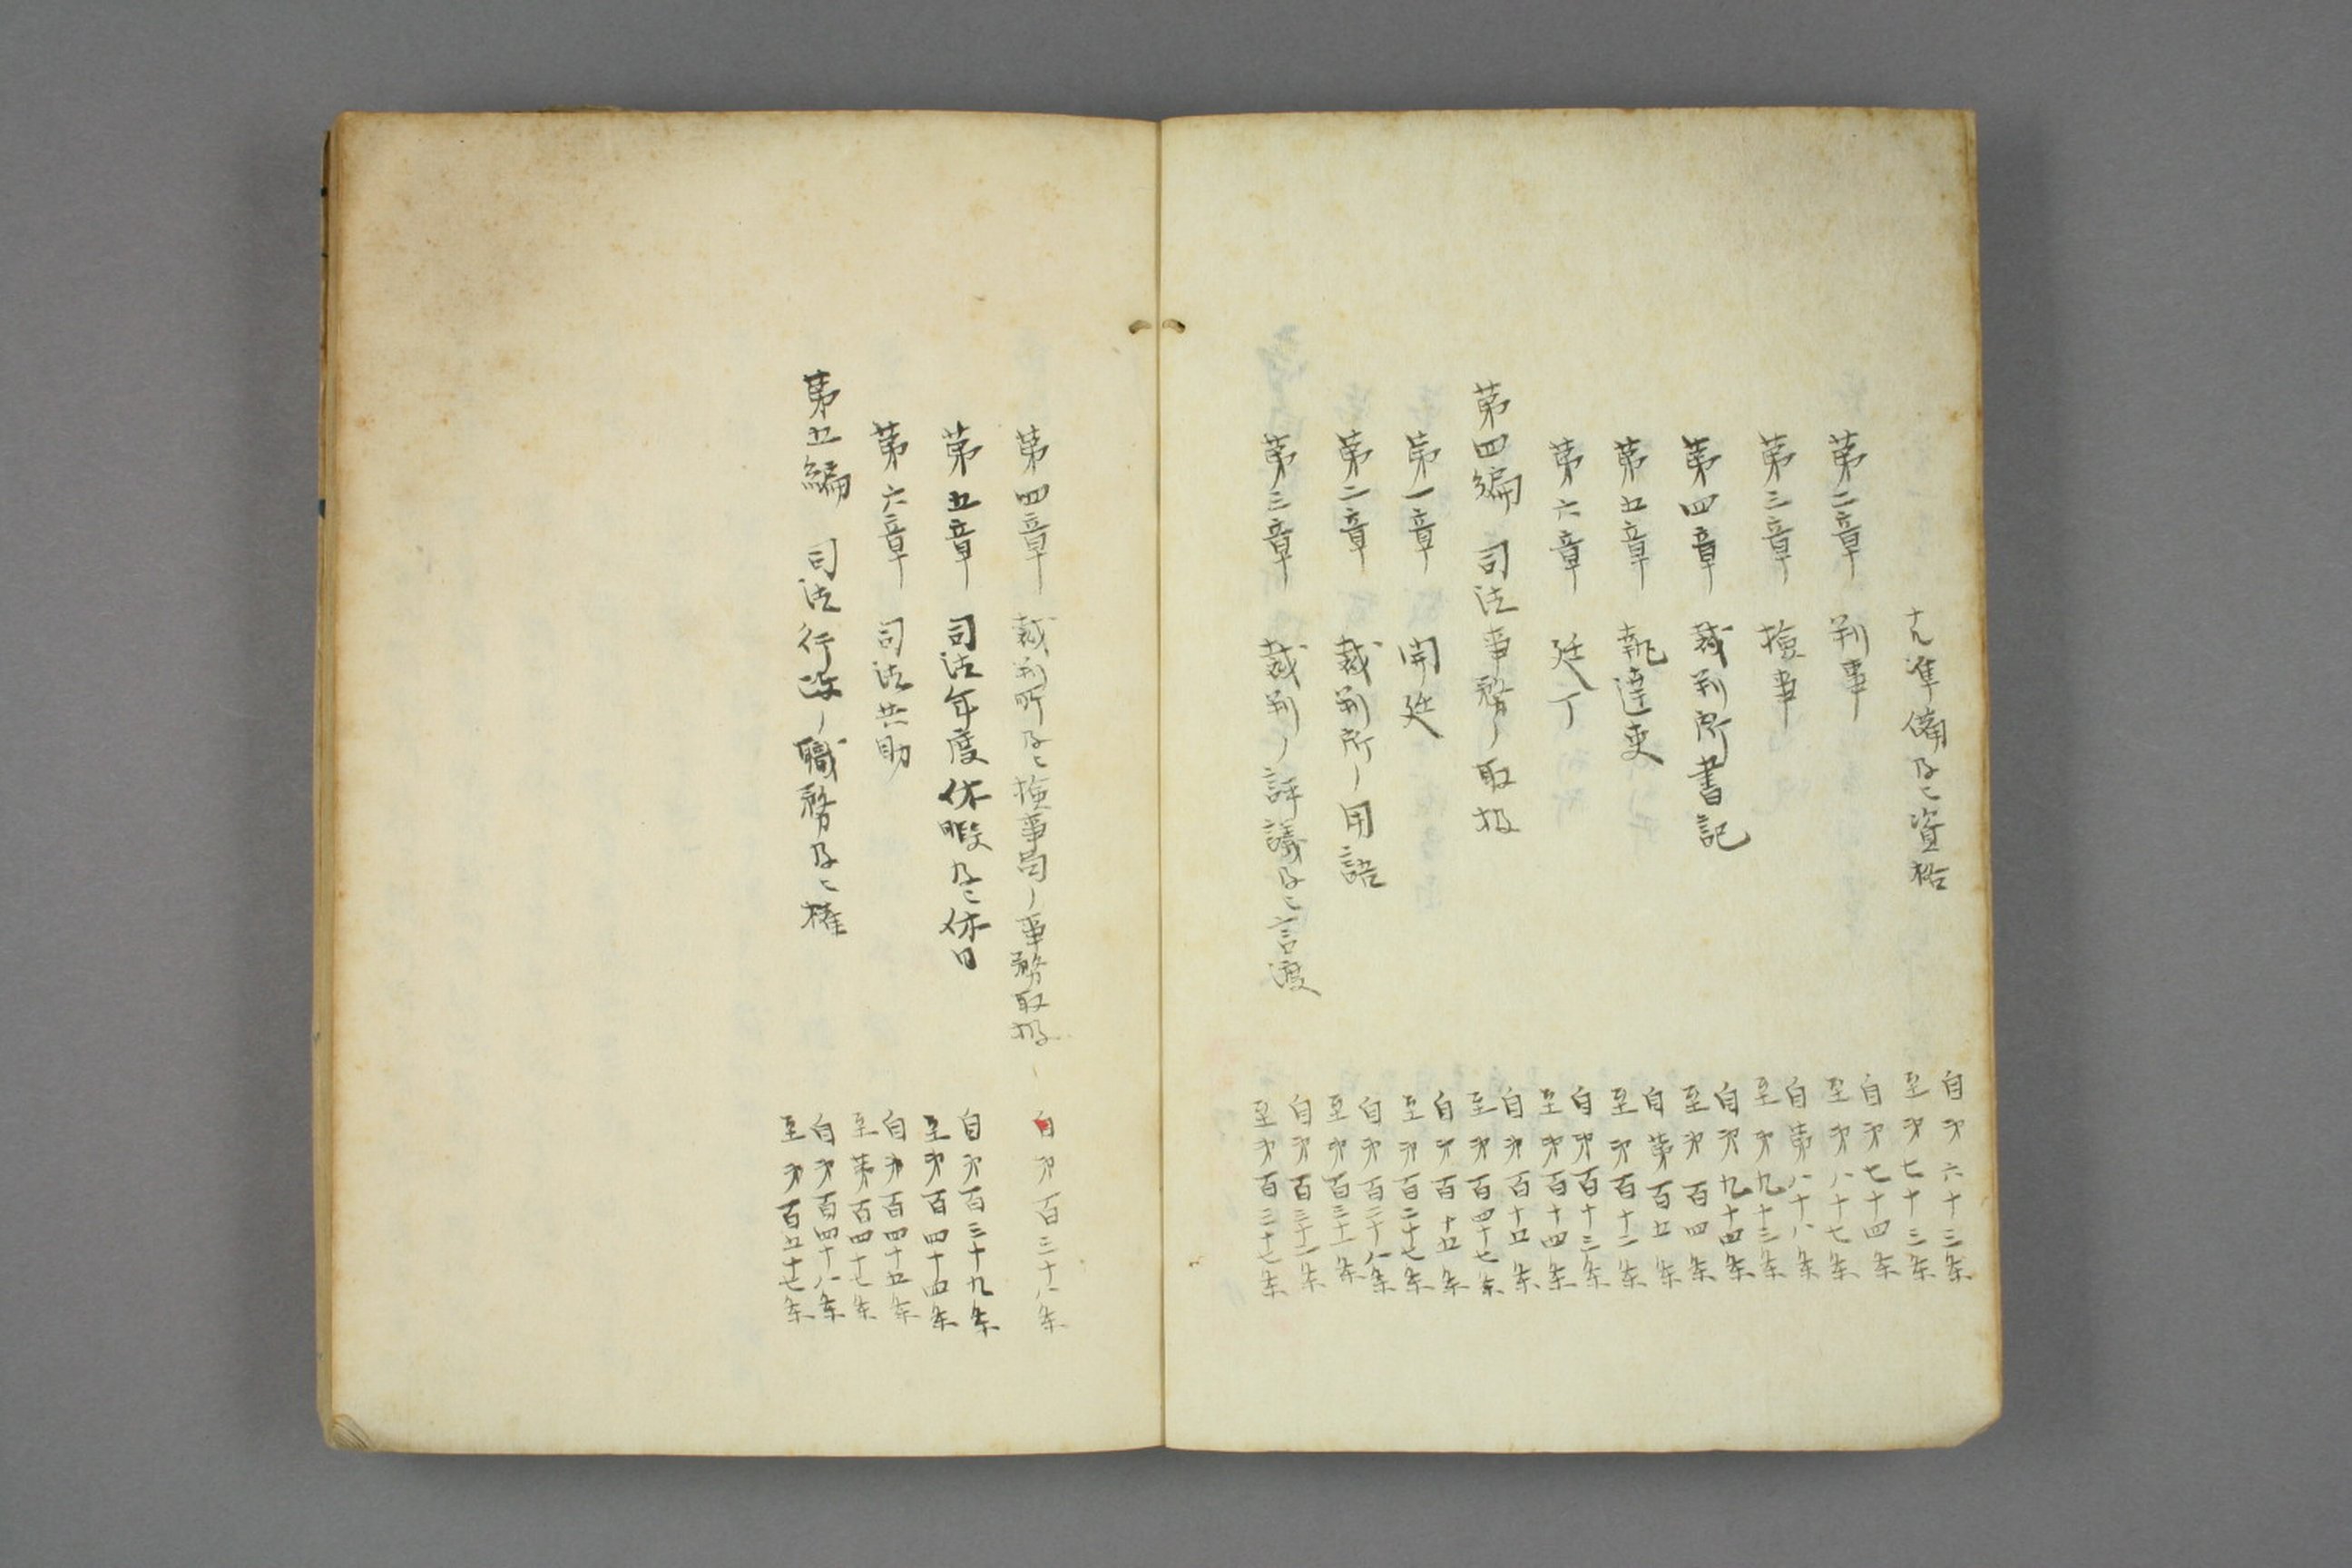 ナル準備及ヒ資格
自第六十三条
至第七十三条
第二章 判事
自第七十四条
至第八十七条
第三章 検事
自第八十八条
至第九十三条
第四章 裁判所書記
自第九十四条
至第百四条
第五章 執達吏
自第百五条
至第百十二条
第六章 廷丁
自第百十三条
至第百十四条
第四編 司法事務ノ取扱
自第百十五条
至第百四十七条
第一章 開廷
自第百十五条
至第百二十七条
第二章 裁判所ノ用語
自第百二十八条
至第百三十一条
第三章 裁判ノ評議及ヒ言渡
自第百三十二条
至第百三十七条
第四章 裁判所及ヒ検事局ノ事務取扱
自第百三十八条
第五章 司法年度休暇及ヒ休日
自第百三十九条
至第百四十四条
第六章 司法共助
自第百四十五条
至第百四十七条
第五編 司法行政ノ職務及ヒ権
自第百四十八条
至第百五十七条